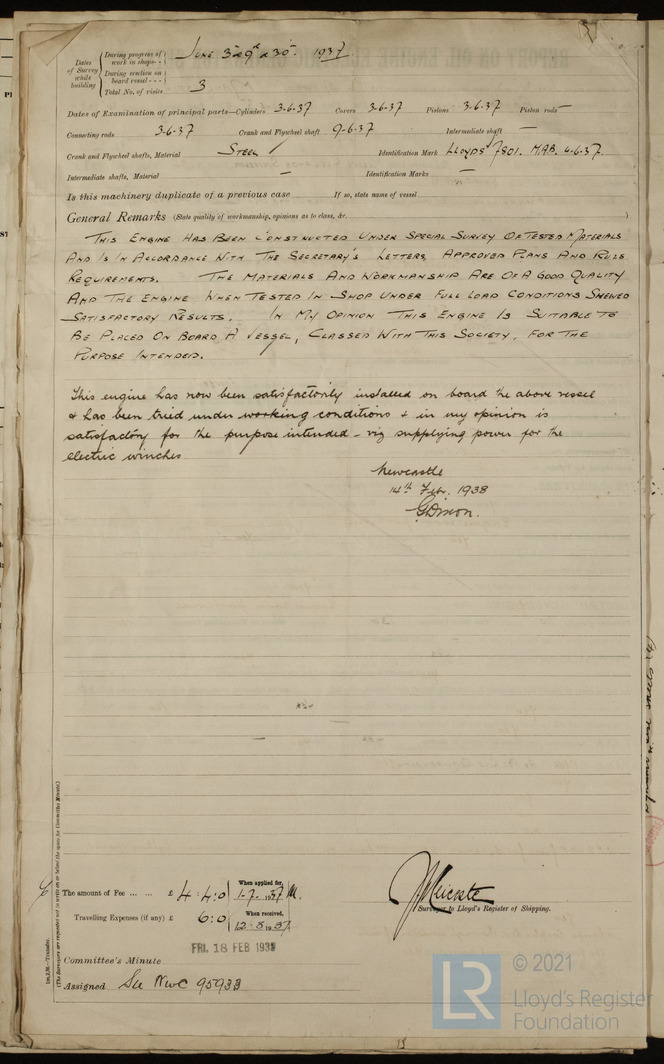 Dates of Survey while building
During progress of work in shops - - June 3rd 9th & 30th 1937
During erection on board vessel - - -
Total No. of visits 3
Dates of Examination of principal parts—Cylinders 3-6-37 Covers 3-6-37 Pistons 3-6-37 Piston rods —
Connecting rods 3-6-37 Crank and Flywheel shaft 9-6-37 Intermediate shaft —
Crank and Flywheel shafts, Material Steel Identification Mark Lloyds 7801. MAB. 4.6.37.
Intermediate shafts, Material — Identification Marks —
Is this machinery duplicate of a previous case If so, state name of vessel
General Remarks (State quality of workmanship, opinions as to class, &c.)
This Engine Has Been Constructed Under Special Survey Of Tested Materials
And Is In Accordance With The Secretary's Letters, Approved Plans And Rule
Requirements. The Materials And Workmanship Are Of A Good Quality
And The Engine When Tested In Shop Under Full Load Conditions Shewed
Satisfactory Results. In My Opinion This Engine Is Suitable To
Be Placed On Board A Vessel, Classed With This Society, For The
Purpose Intended.
This engine has now been satisfactorily installed on board the above vessel
& has been tried under working conditions & in my opinion is
satisfactory for the purpose intended – viz supplying power for the
electric winches
Newcastle
14th Feb. 1938
G Dixon.
The amount of Fee ... ... £ 4:4:0 When applied for, 1-7-1937
Travelling Expenses (if any) £ 6:0 When received, 12-8-1937
Surveyor to Lloyd's Register of Shipping.
FRI. 18 FEB 1938
Committee's Minute
Assigned See Nwc 95933
(The Surveyors are requested not to write on or below the space for Committee's Minute.)
© 2021
LR
Lloyd's Register
Foundation